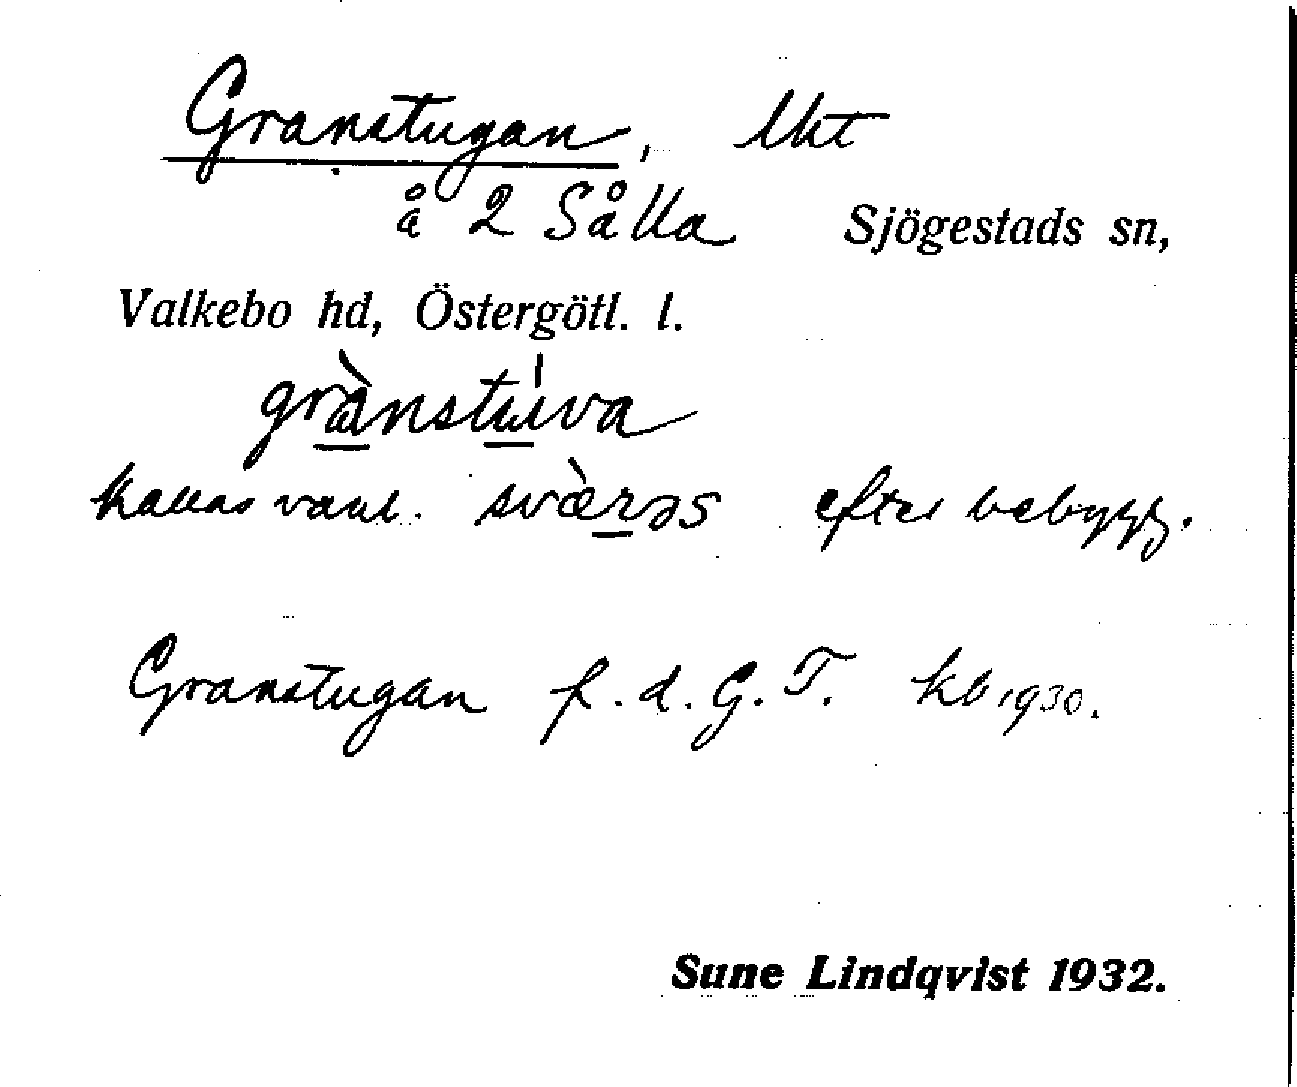 Granstugan, lht
å 2 Sålla Sjögestads sn,
Valkebo hd, Östergötl. l.
grànstúva
kallas vanl. svæ̀rəs efter bebygg.
Granstugan f.d. G.T. kb 1930.
Sune Lindqvist 1932.